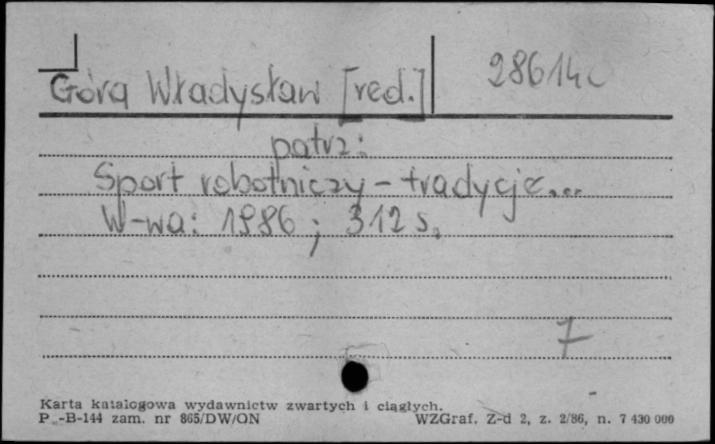 Góra Władysław [red.] 286140
patrz:
Sport robotniczy - tradycje...
W-wa: 1986; 312 s.
7
Karta katalogowa wydawnictw zwartych i ciągłych.
P -B-144 zam. nr 865/DW/ON WZGraf. Z-d 2, z. 2/86, n. 7 430 000